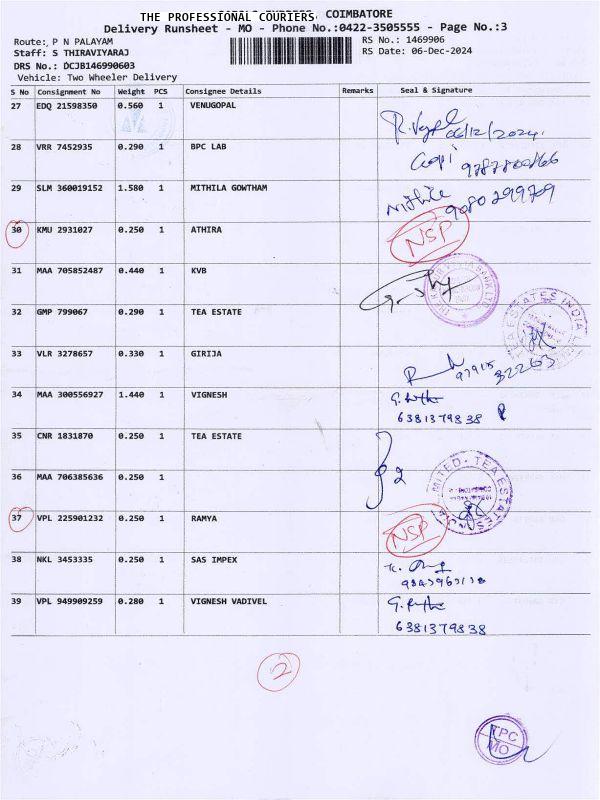 THE PROFESSIONAL COURIERS COIMBATORE
Delivery Runsheet - MO - Phone No.:0422-3505555 - Page No.:3
Route: P N PALAYAM
RS No.: 1469906
Staff: S THIRAVIYARAJ
RS Date: 06-Dec-2024
DRS No.: DCJB146990603
Vehicle: Two Wheeler Delivery
S No Consignment No Weight PCS Consignee Details Remarks Seal & Signature
27 EDQ 21598350 0.560 1 VENUGOPAL
06/12/2024.
28 VRR 7452935 0.290 1 BPC LAB
Gopi
29 SLM 360019152 1.580 1 MITHILA GOWTHAM
9080299709
30 KMU 2931027 0.250 1 ATHIRA NSP
31 MAA 705852487 0.440 1 KVB
32 GMP 799067 0.290 1 TEA ESTATE
TEA ESTATES INDIA
33 VLR 3278657 0.330 1 GIRIJA
97915 32263
34 MAA 300556927 1.440 1 VIGNESH
6381379838
35 CNR 1831870 0.250 1 TEA ESTATE
36 MAA 706385636 0.250 1
TEA ESTATES
37 VPL 225901232 0.250 1 RAMYA NSP
38 NKL 3453335 0.250 1 SAS IMPEX
39 VPL 949909259 0.280 1 VIGNESH VADIVEL
6381379838
2
TPC
MO